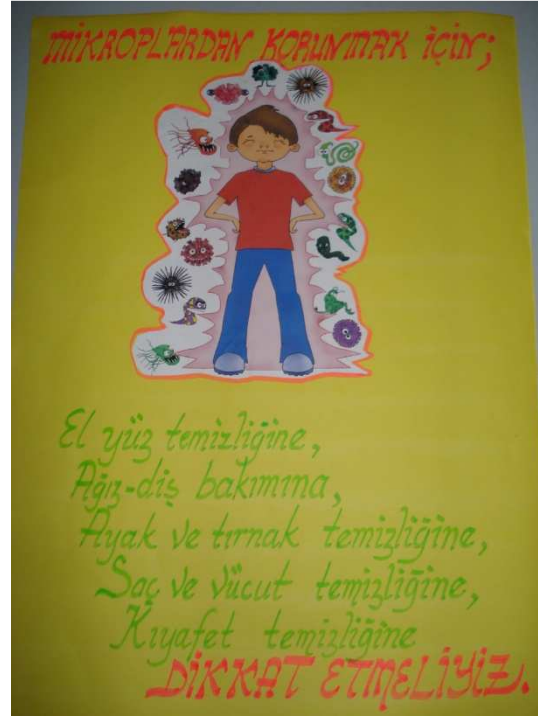 MİKROPLARDAN KORUNMAK İÇİN;
El yüz temizliğine,
Ağız-diş bakımına,
Ayak ve tırnak temizliğine,
Saç ve vücut temizliğine,
Kıyafet temizliğine
DİKKAT ETMELİYİZ.